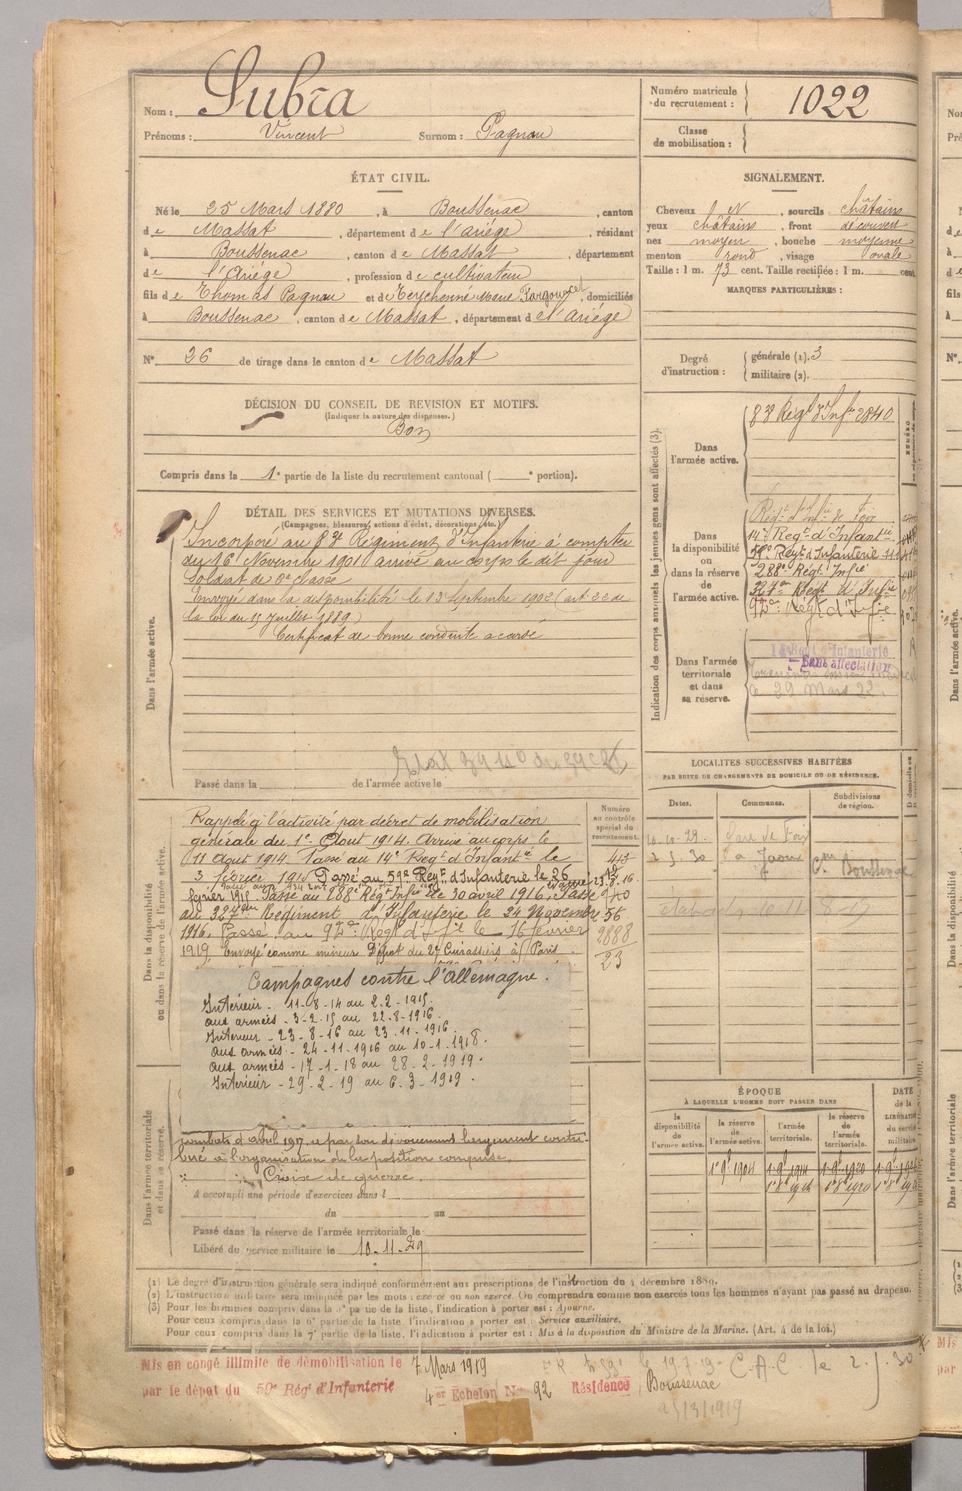 Nom : Subra
Prénoms : Vincent Surnom : Pagnau
Numéro matricule du recrutement : 1022
Classe de mobilisation :
ÉTAT CIVIL.
Né le 25 Mars 1880, à Boussenac, canton
de Massat, département de l'Ariège, résidant
à Boussenac, canton de Massat, département
de l'Ariège, profession de cultivateur
fils de Thomas Pagnau et de Teychenné Marie, domiciliés
à Boussenac, canton de Massat, département de l'Ariège
N° 26 de tirage dans le canton de Massat
SIGNALEMENT.
Cheveux N, sourcils châtains
yeux châtains, front découvert
nez moyen, bouche moyenne
menton rond, visage ovale
Taille : 1 m. 73 cent. Taille rectifiée : 1 m. cent.
MARQUES PARTICULIÈRES :
Degré d'instruction : générale (1). 3
militaire (2).
DÉCISION DU CONSEIL DE REVISION ET MOTIFS.
(Indiquer la nature des dispenses.)
Bon
Compris dans la 1e partie de la liste du recrutement cantonal ( e portion).
DÉTAIL DES SERVICES ET MUTATIONS DIVERSES.
(Campagnes, blessures, actions d'éclat, décorations, etc.)
Dans l'armée active.
Incorporé au 83e Régiment d'Infanterie à compter
du 16 Novembre 1901 arrivé au corps le dit jour
soldat de 2e classe
Envoyé dans la disponibilité le 13 Septembre 1902 (art
la loi du 15 Juillet 1889)
Certificat de bonne conduite accordé
Passé dans la de l'armée active le
Indication des corps auxquels les jeunes gens sont affectés (3).
Dans l'armée active.
83e Régt d'Infie 2840
Dans la disponibilité ou dans la réserve de l'armée active.
Régt d'Infie de Foix
14e Régt d'Infantie
59e Régt d'Infanterie
288e Régt Infie
327e Régt d'Infie
92e Régt d'Infie
Dans l'armée territoriale et dans sa réserve.
Régt d'Infanterie
Sans affectation
29 Mars 22
LOCALITÉS SUCCESSIVES HABITÉES
PAR SUITE DE CHANGEMENTS DE DOMICILE OU DE RÉSIDENCE.
Dates. Communes. Subdivisions de région.
10.10.29 Foix
2 5 30 Boussenac
Dans la disponibilité ou dans la réserve de l'armée active.
Numéro au contrôle spécial du recrutement.
Rappelé à l'activité par décret de mobilisation
générale du 1er Août 1914. Arrivé au corps le
11 Août 1914. Passé au 14e Régt d'Infantie le
3 février 1915 Passé au 59e Régt d'Infanterie le 26
février 1915 Passé au 288e Régt Infie le 30 avril 1916. Passé
au 327e Régiment d'Infanterie le 24 Novembre
1916. Passé au 92e Régt d'Infie le 16 février
1919. Envoyé comme mineur Dépôt du 27 Cuirassiers à Paris
2888
23
Campagnes contre l'Allemagne.
Intérieur - 11-8-14 au 2-2-1915.
aux armées - 3-2-15 au 22-8-1916.
Intérieur - 23-8-16 au 23-11-1916
aux armées - 24-11-1916 au 10-1-1918.
aux armées - 17-1-18 au 28-2-1919.
Intérieur - 29-2-19 au 6-3-1919.
Dans l'armée territoriale et dans sa réserve.
combats d'avril 1917, a par son dévouement largement contri-
bué à l'organisation de la position conquise.
Croix de guerre.
A accompli une période d'exercices dans l
du au
Passé dans la réserve de l'armée territoriale le
Libéré du service militaire le 10-11-29
ÉPOQUE
À LAQUELLE L'HOMME DOIT PASSER DANS
la disponibilité de l'armée active. la réserve de l'armée active. l'armée territoriale. la réserve de l'armée territoriale. DATE de la LIBÉRATION du service militaire
1 9bre 1904 1 9bre 1914 1 9bre 1920
(1) Le degré d'instruction générale sera indiqué conformément aux prescriptions de l'instruction du 4 décembre 1889.
(2) L'instruction militaire sera indiquée par les mots : exercé ou non exercé. On comprendra comme non exercés tous les hommes n'ayant pas passé au drapeau.
(3) Pour les hommes compris dans la 5e partie de la liste, l'indication à porter est : Ajourné.
Pour ceux compris dans la 6e partie de la liste, l'indication à porter est : Service auxiliaire.
Pour ceux compris dans la 7e partie de la liste, l'indication à porter est : Mis à la disposition du Ministre de la Marine. (Art. 4 de la loi.)
Mis en congé illimité de démobilisation le 7 Mars 1919
par le dépôt du 59e Régt d'Infanterie
4er Échelon N° 92 Résidence Boussenac
C.A.C le 2.5.30